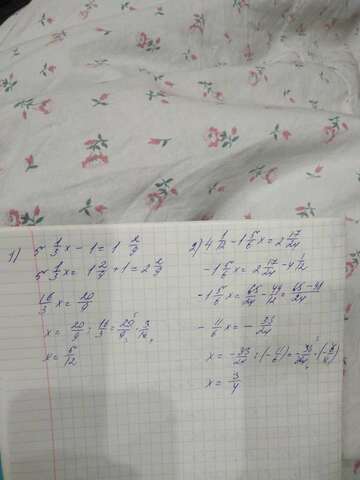 1) 5 1/3 x - 1 = 1 2/9
5 1/3 x = 1 2/9 + 1 = 2 2/9
16/3 x = 20/9
x = 20/9 : 16/3 = 20/9 · 3/16
x = 5/12
2) 4 1/12 - 1 5/6 x = 2 17/24
-1 5/6 x = 2 17/24 - 4 1/12
-1 5/6 x = 65/24 - 49/12 =
- 11/6 x = - 33/24
x = - 33/24 : (- 11/6) = - 33/24 · (- 6/11)
x = 3/4